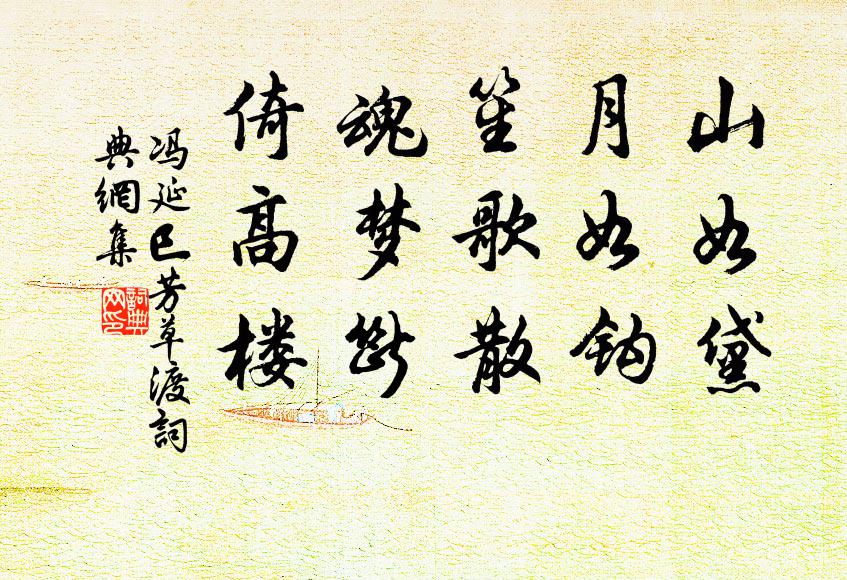 山如黛
月如钩
笙歌散
魂梦断
倚高楼
冯延巳芳草渡词
典網集
詞典网印